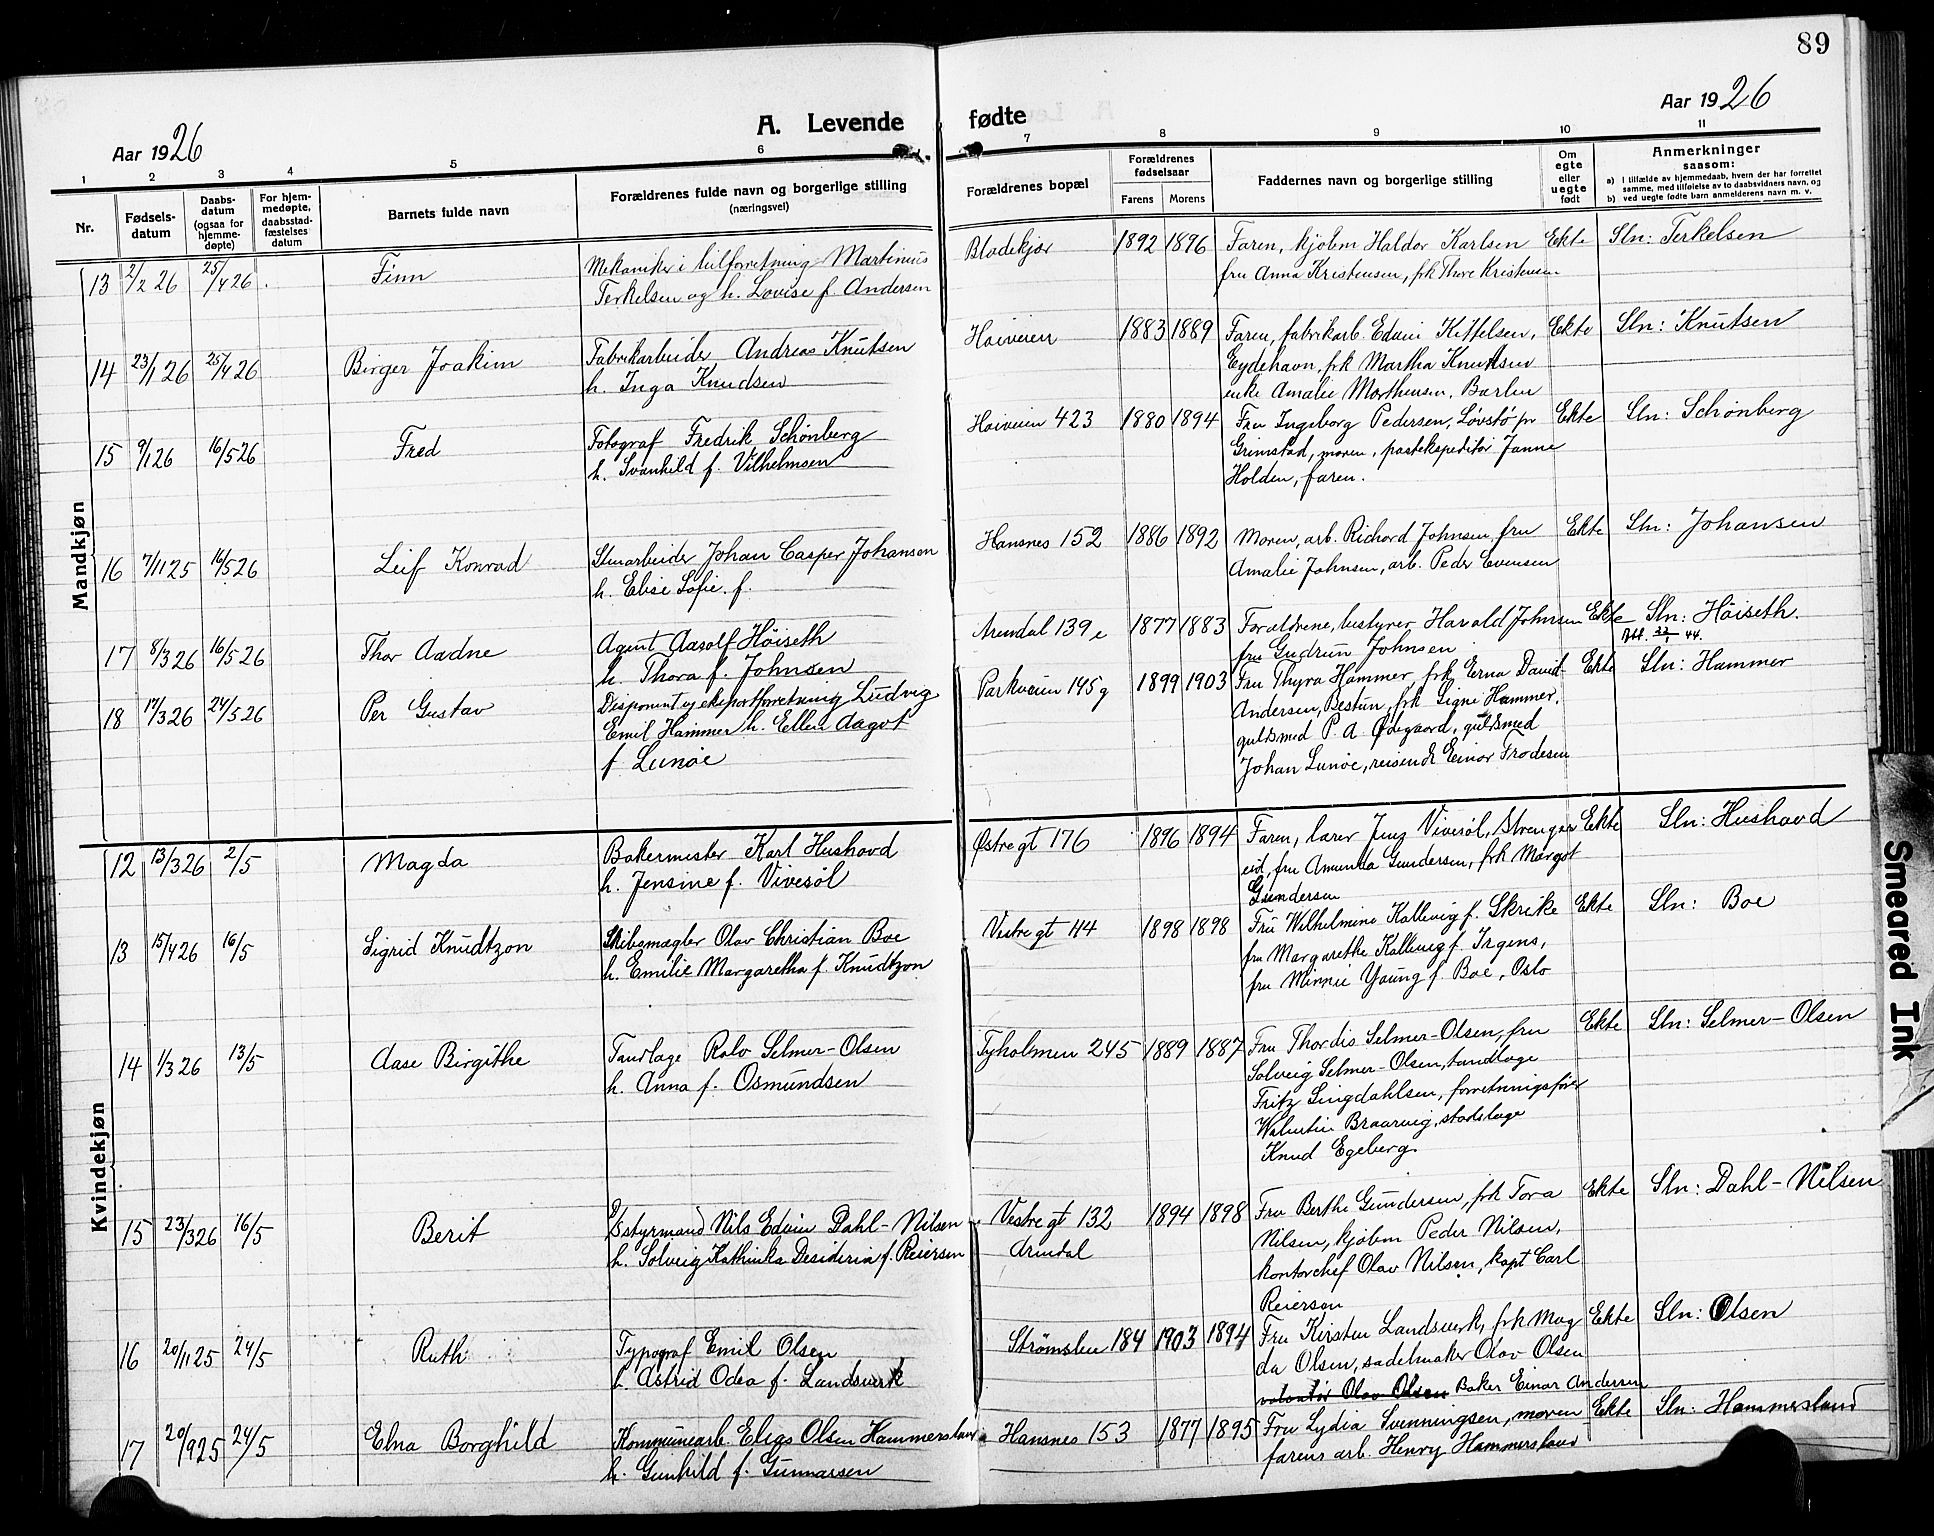 89
Aar 1926
A. Levende
fødte
Aar 1926
1 2 3 4 5 6 7 8 9 10 11
Nr.
Fødsels-datum
Daabs-datum (ogsaa for hjemme-døpte)
For hjem-medøpte, daabsstad-fæstelses datum
Barnets fulde navn
Forældrenes fulde navn og borgerlige stilling
(næringsvei)
Forældrenes bopæl
Forældrenes fødselsaar
Farens Morens
Faddernes navn og borgerlige stilling
Om egte eller uegte født
Anmerkninger
saasom:
a) I tilfælde av hjemmedaab, hvem der har forrettet samme, med tilføielse av to daabsvidners navn, og
b) ved uegte fødte barn anmelderens navn m. v.
Mandkjøn
13 2/2 26 25/4 26 . Finn
Mekaniker i bilforretning Martinius
Terkelsen og h. Lovise f. Andersen
Blødekjær 1892 1896
Faren, kjøbm Haldor Karlsen
fru Anna Kristensen, frk Thore Kristensen
Ekte Sln: Terkelsen
14 23/1 26 25/4 26 Birger Joakim
Fabrikarbeider Andreas Knutsen
h. Inga Knudsen
Høiveien 1883 1889
Faren, fabrikarb. Edvin Kittelsen,
Eydehavn, frk Martha Knudsen
enke Amalie Morthensen, Barbu
Ekte Sln: Knutsen
15 9/1 26 16/5 26 Fred
Fotograf Fredrik Schönberg
h. Svanhild f. Vilhelmsen
Høiveien 423 1880 1894
Fru Ingeborg Pedersen, Løvstø pr
Grimstad, moren, postekspeditør Janne
Holden, faren.
Ekte Sln: Schönberg
16 7/11 25 16/5 26 Leif Konrad
Stenarbeider Johan Casper Johansen
h. Elise Sofie f.
Hansnes 152 1886 1892
Moren, arb. Richard Johnsen, fru
Amalie Johnsen, arb. Peder Evensen
Ekte Sln: Johansen
17 8/3 26 16/5 26 Thor Aadne
Agent Aasolf Höiseth
h. Thora f. Johnsen
Arendal 139 e 1877 1883
Forældrene, bestyrer Harald Johnsen
fru Gudrun Johnsen
Ekte Sln: Höiseth.
44.
18 17/3 26 24/5 26 Per Gustav
Disponent eksportforretning Ludvig
Emil Hammer h. Ellen Aagot
f. Lunöe
Parkveien 145 g 1899 1903
Fru Thyra Hammer, frk Erna David-
Andersen, Bestun, frk Signe Hammer,
guldsmed P. A. Ødegaard, guldsmed
Johan Lunöe, reisende Einar Frodesen
Ekte Sln: Hammer
Kvindekjøn
12 13/3 26 2/5 Magda
Bakermester Karl Hushovd
h. Jensine f. Vivesöl
Østregt 176 1896 1894
Faren, lærer Jens Vivesöl, Strengers
eid, fru Amunda Gundersen, frk Margot
Gundersen
Ekte Sln: Hushovd
13 15/4 26 16/5 Sigrid Knudtzon
Skibsmægler Olav Christian Boe
h. Emilie Margaretha f. Knudtzon
Vestregt 44 1898 1898
Fru Wilhelmine Kallevig f. Skrike
fru Margarethe Kallevig f. Irgens,
fru Minnie Young f. Boe, Oslo
Ekte Sln: Boe
14 1/3 26 13/5 Aase Birgithe
Tandlæge Rolv Selmer-Olsen
h. Anna f. Osmundsen
Tyholmen 245 1889 1887
Fru Thordis Selmer-Olsen, fru
Solveig Selmer-Olsen, tandlæge
Fritz Lingdahlsen, forretningsfører
Valentin Braarvig, stadslæge
Knud Egeberg
Ekte Sln: Selmer-Olsen
15 23/3 26 16/5 Berit
D/S styrmand Nils Edvin Dahl-Nilsen
h. Solveig Kathinka Desideria f. Reiersen
Vestregt 132
Arendal
1894 1898
Fru Berthe Gundersen, frk Tora
Nilsen, kjøbm Peder Nilsen,
kontorchef Olav Nilsen, kapt Carl
Reiersen
Ekte Sln: Dahl-Nilsen
16 20/11 25 24/5 Ruth
Typograf Emil Olsen
h. Astrid Odea f. Landsverk
Strømsbu 184 1903 1894
Fru Kirsten Landsverk, frk Mag
da Olsen, sadelmaker Olav Olsen
Olav Olsen Baker Einar Andersen
Ekte Sln: Olsen
17 20/9 25 24/5 Elna Borghild
Kommunearb Elias Olsen Hammersland
h. Gunhild f. Gunnarsen
Hansnes 153 1877 1895
Fru Lydia Svenningsen, moren
faren arb. Henry Hammersland
Ekte Sln: Hammersland
Smeared Ink